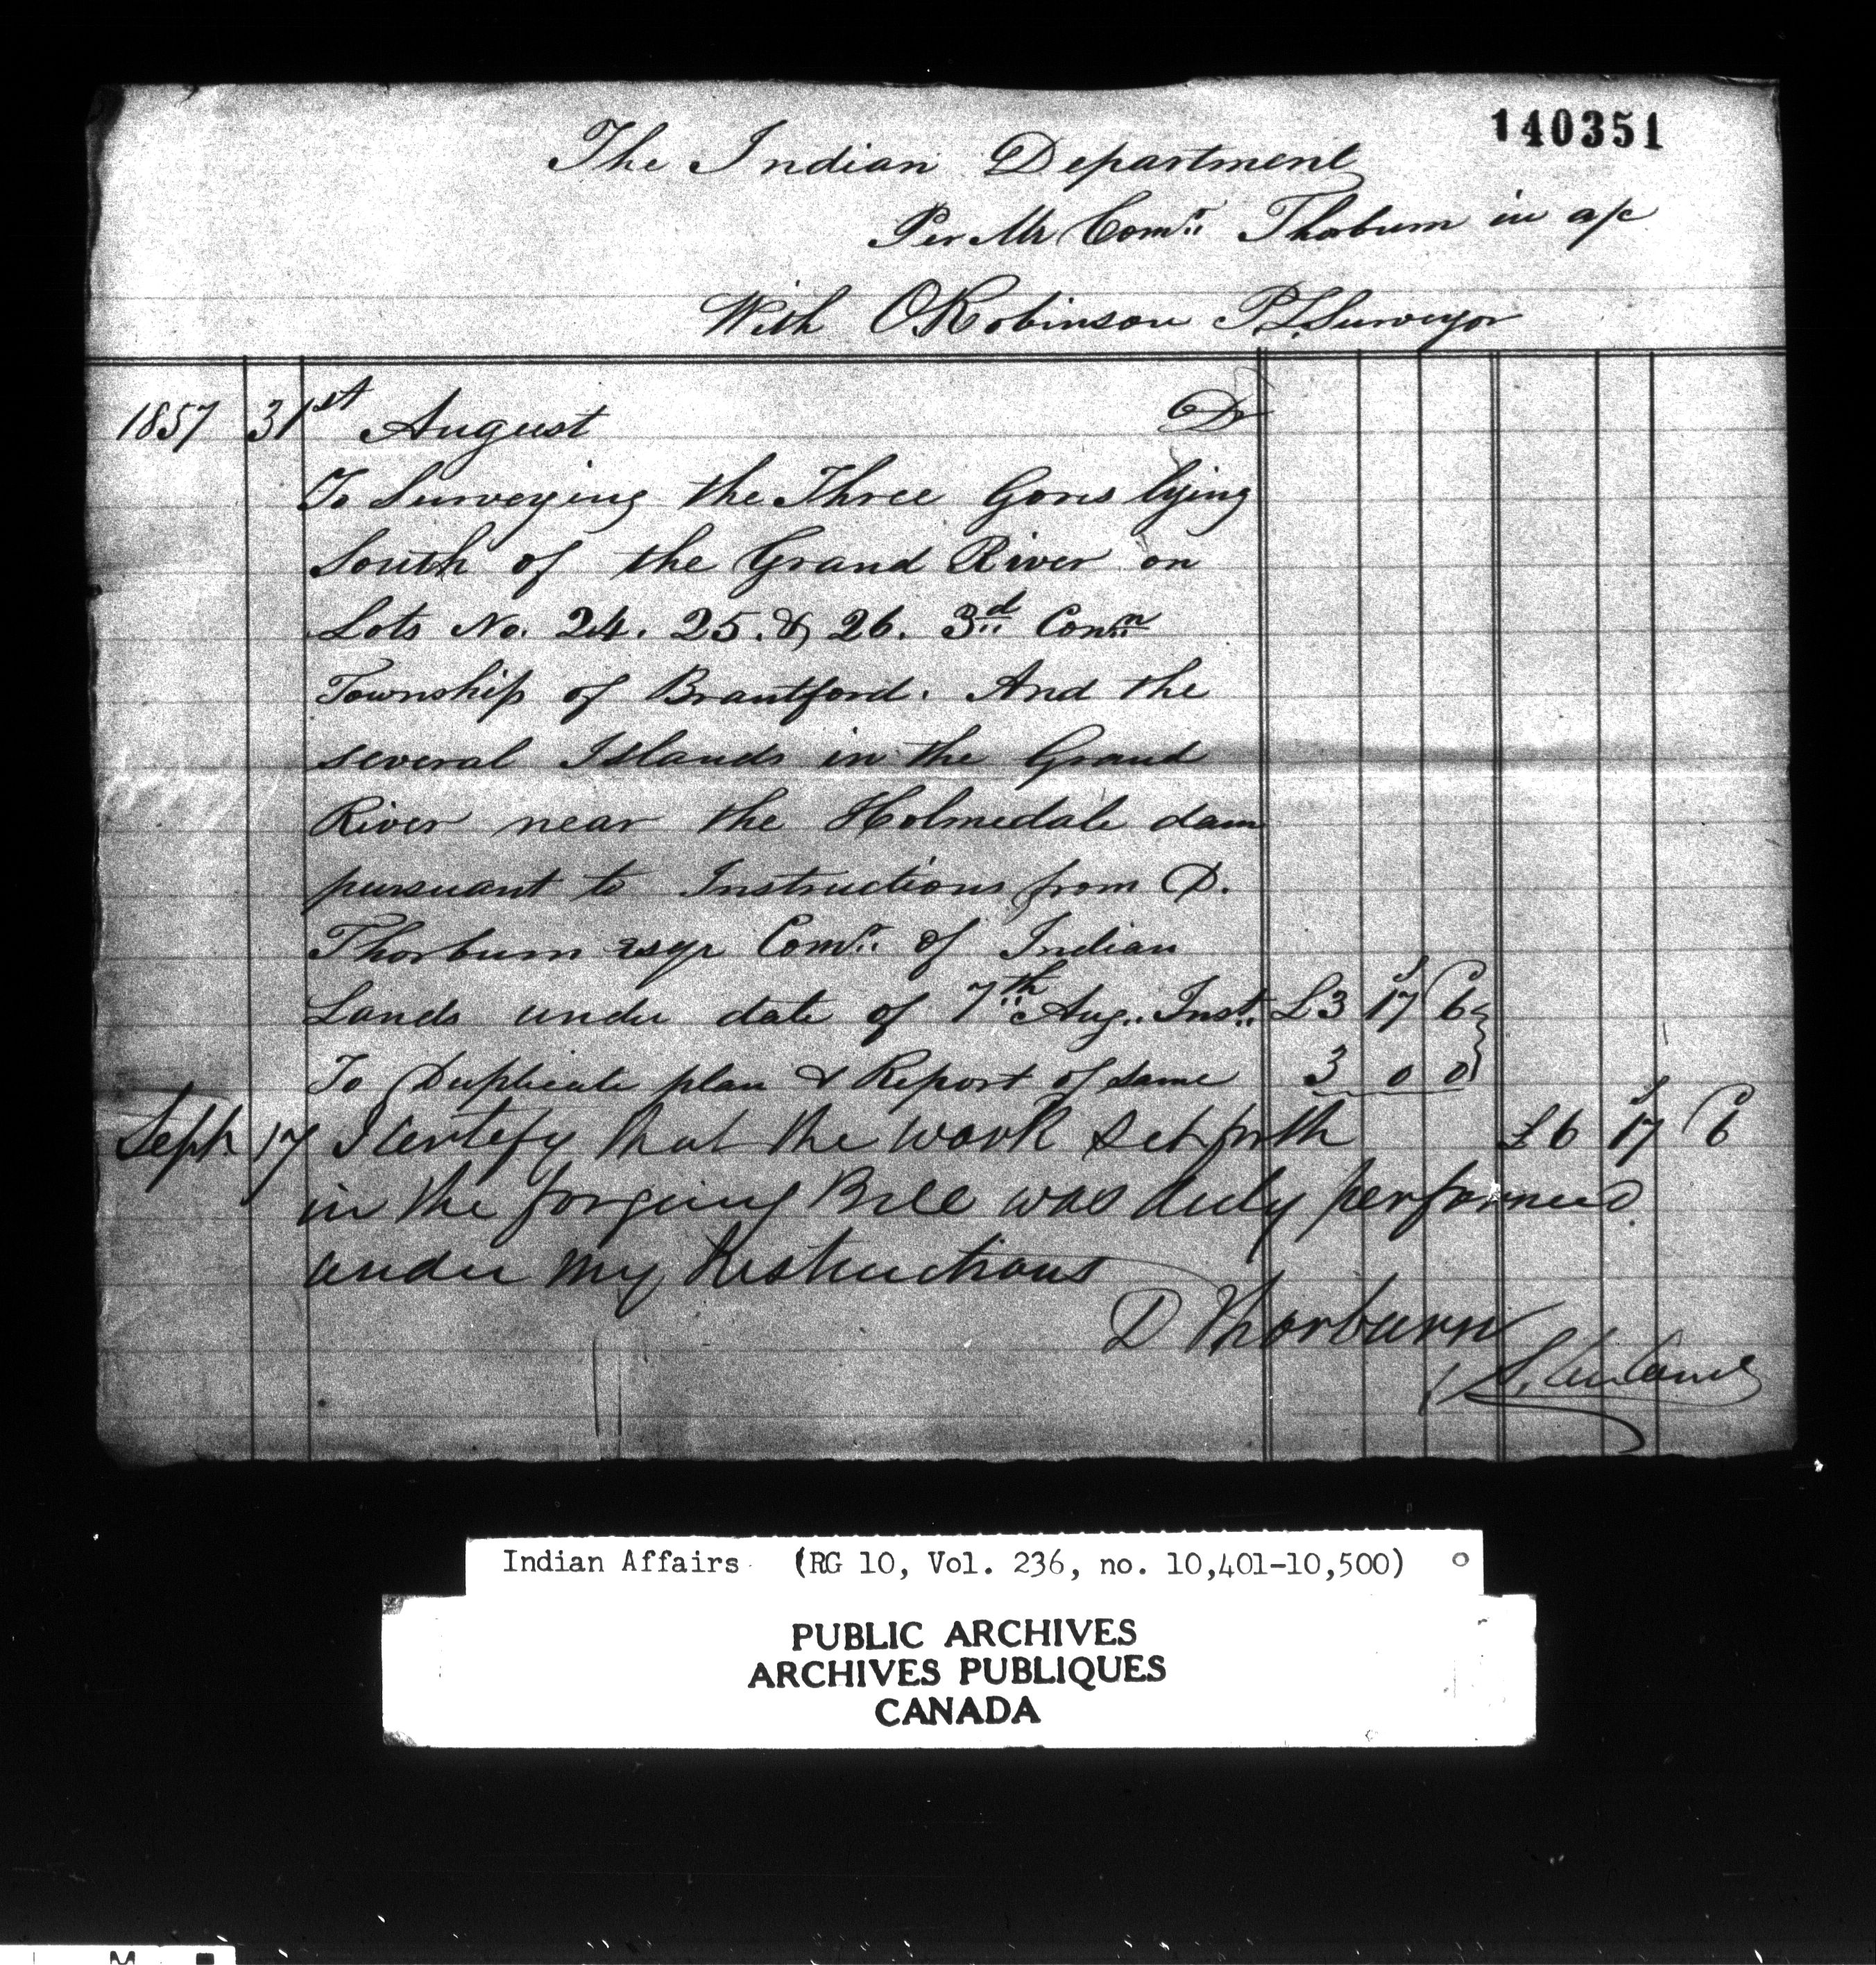 140351
The Indian Department
Per Mr Comr. Thorburn in a/c
With O Robinson P. L. Surveyor
1857 31st August Dr
To Surveying the Three Gores lying
South of the Grand River on
Lots No. 24. 25. & 26. 3rd Conn
Township of Brantford. And the
several Islands in the Grand
River near the Holmedale dam
pursuant to Instructions from D.
Thorburn esqr Comr. of Indian
Lands under date of 7th Aug. Inst. £3 17s 6d
To Duplicate plan & Report of same 3 0 0
Sept 17 I certify that the work set forth £6 17s 6d
in the forgoing Bill was duly performed
under my Instructions
D Thorburn
Indian Affairs (RG 10, Vol. 236, no. 10,401-10,500)
PUBLIC ARCHIVES
ARCHIVES PUBLIQUES
CANADA
M